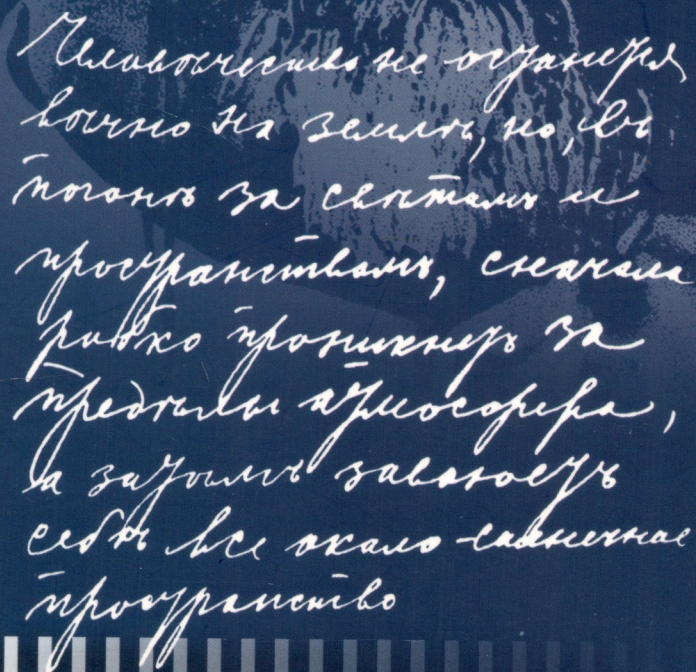 Человѣчество не останется
вѣчно на землѣ, но, въ
погонѣ за свѣтомъ и
пространствомъ, сначала
робко проникнетъ за
предѣлы атмосферы,
а затѣмъ завоюетъ
себѣ все около-солнечное
пространство